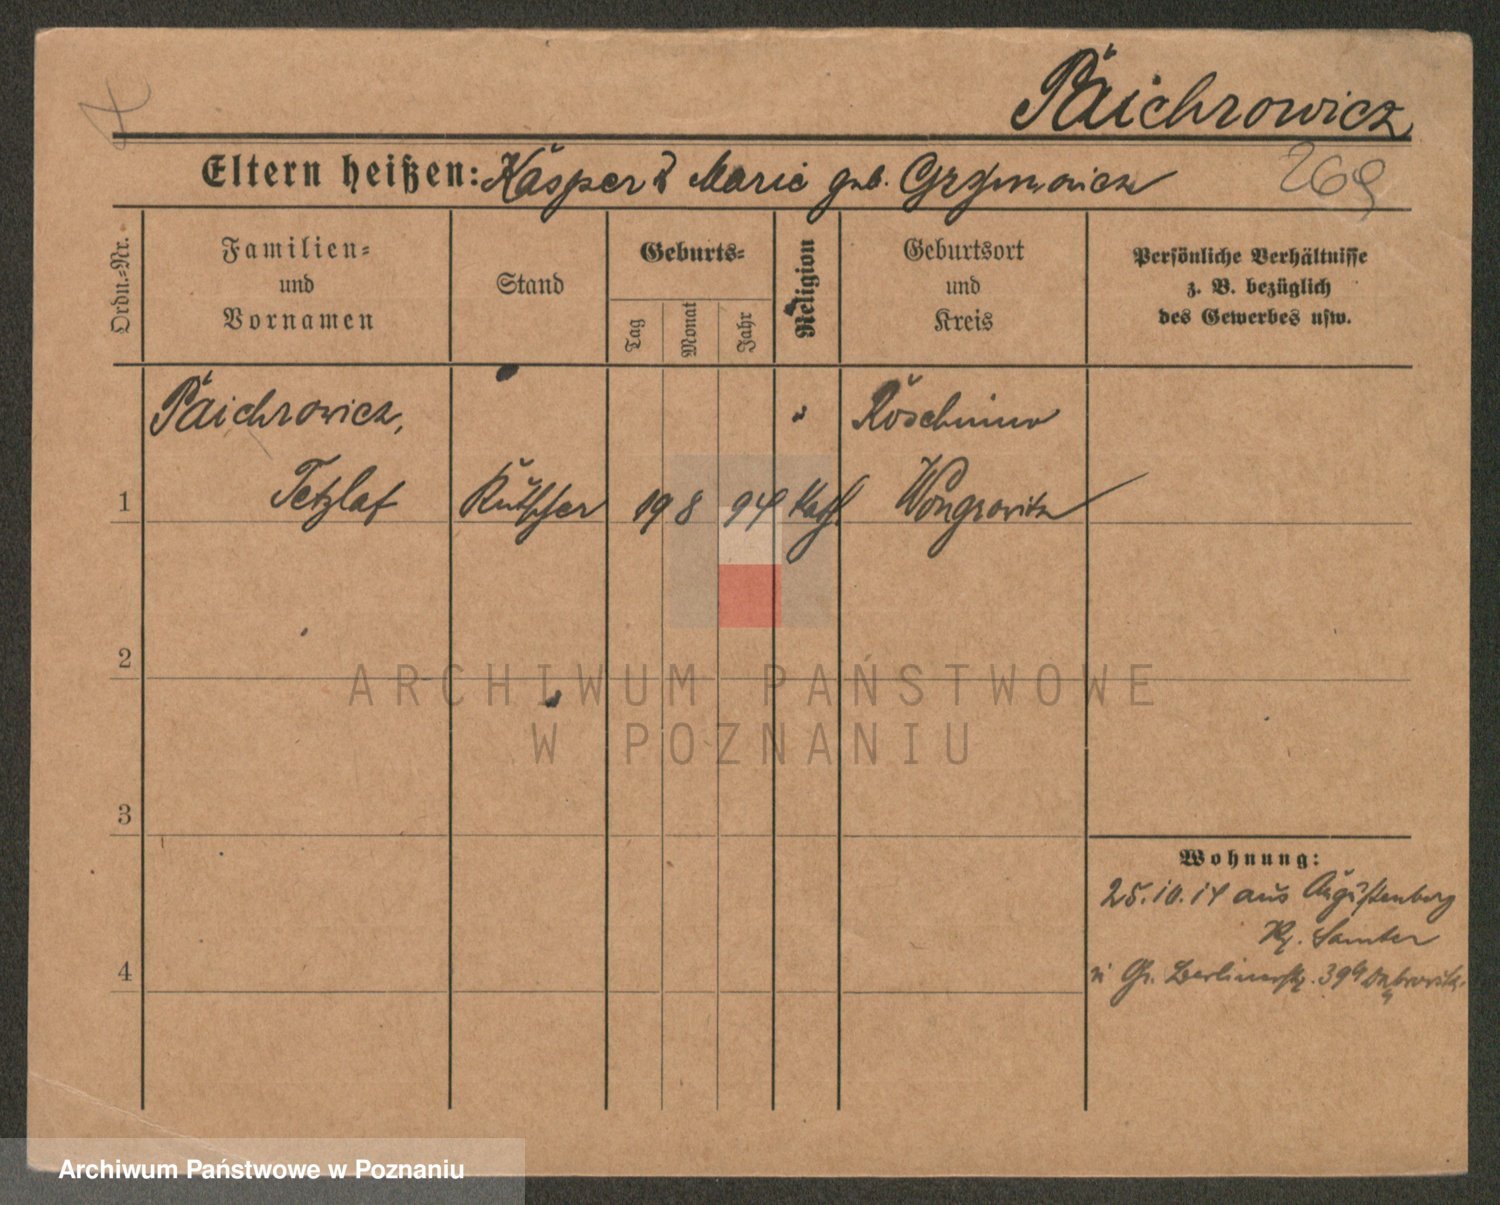 Päichrowicz
Eltern heißen: Kasper & Marie geb. Grzymowicz
269
Ordn.-Nr.
Familien- und Vornamen
Stand
Geburts-
Tag
Monat
Jahr
Religion
Geburtsort und Kreis
Persönliche Verhältnisse
z. B. bezüglich
des Gewerbes usw.
Päichrowicz,
Röschinno
1 Tetzlaf Kutscher 19 8 94 Kath Wongrowitz
2
3
4
Wohnung:
25.10.14 aus Augustenberg
Kr. Samter
n Gr. Berlinerstr. 39a
ARCHIWUM PAŃSTWOWE
W POZNANIU
Archiwum Państwowe w Poznaniu